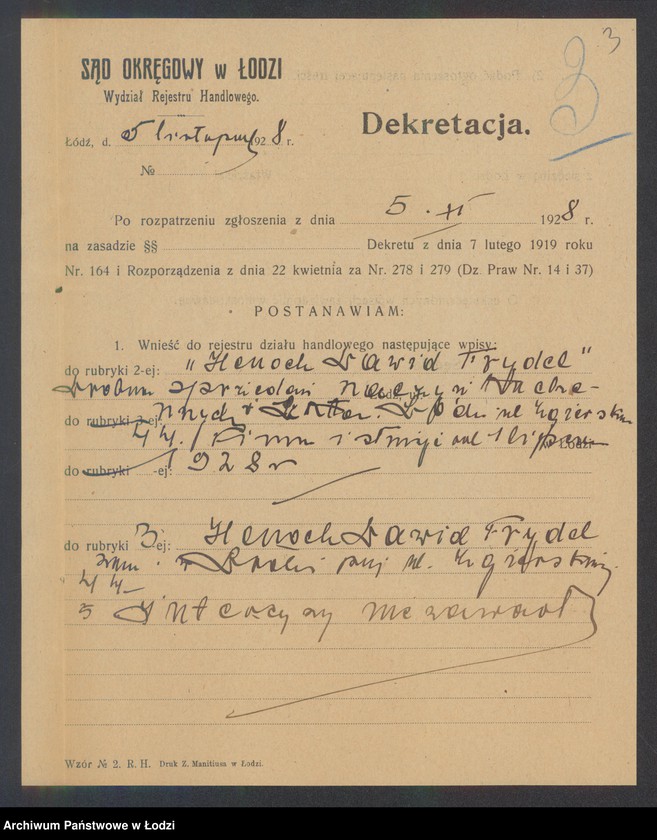 3
3
SĄD OKRĘGOWY w ŁODZI
Wydział Rejestru Handlowego.
Dekretacja.
Łódź, d. 5 listopad 1928 r.
№
Po rozpatrzeniu zgłoszenia z dnia 5. XI 1928 r.
na zasadzie §§ Dekretu z dnia 7 lutego 1919 roku
Nr. 164 i Rozporządzenia z dnia 22 kwietnia za Nr. 278 i 279 (Dz. Praw Nr. 14 i 37)
POSTANAWIAM:
1. Wnieść do rejestru działu handlowego następujące wpisy:
do rubryki 2-ej: "Henoch Dawid Frydel"
sprzedaż naczyń
do rubryki 3-ej: ul. Zgierska
44. Firma istnieje od 1 lipca
do rubryki -ej: 1928 r
do rubryki 3 ej: Henoch Dawid Frydel
zam. w Łodzi przy ul. Zgierskiej
44
5 Intercyzy nie zawarł
Wzór № 2. R. H. Druk Z. Manitiusa w Łodzi.
Archiwum Państwowe w Łodzi